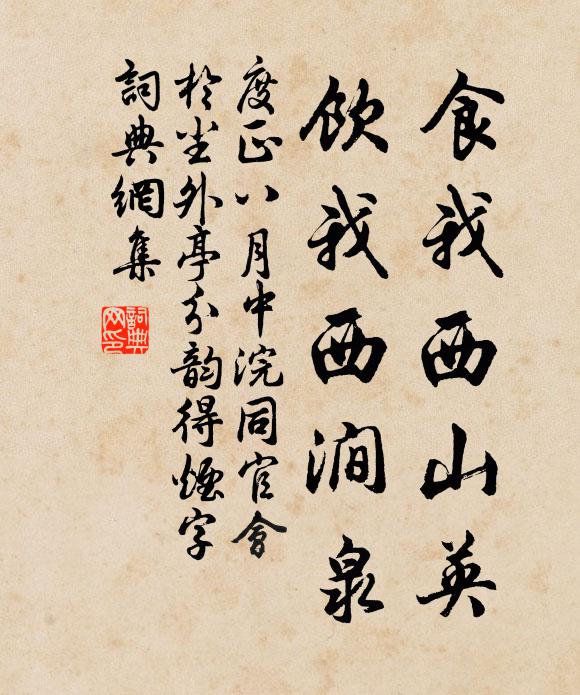 食我西山英
飲我西澗泉
度正八月中浣同官會
於尘外亭分韵得煙字
詞典網集
詞典网印